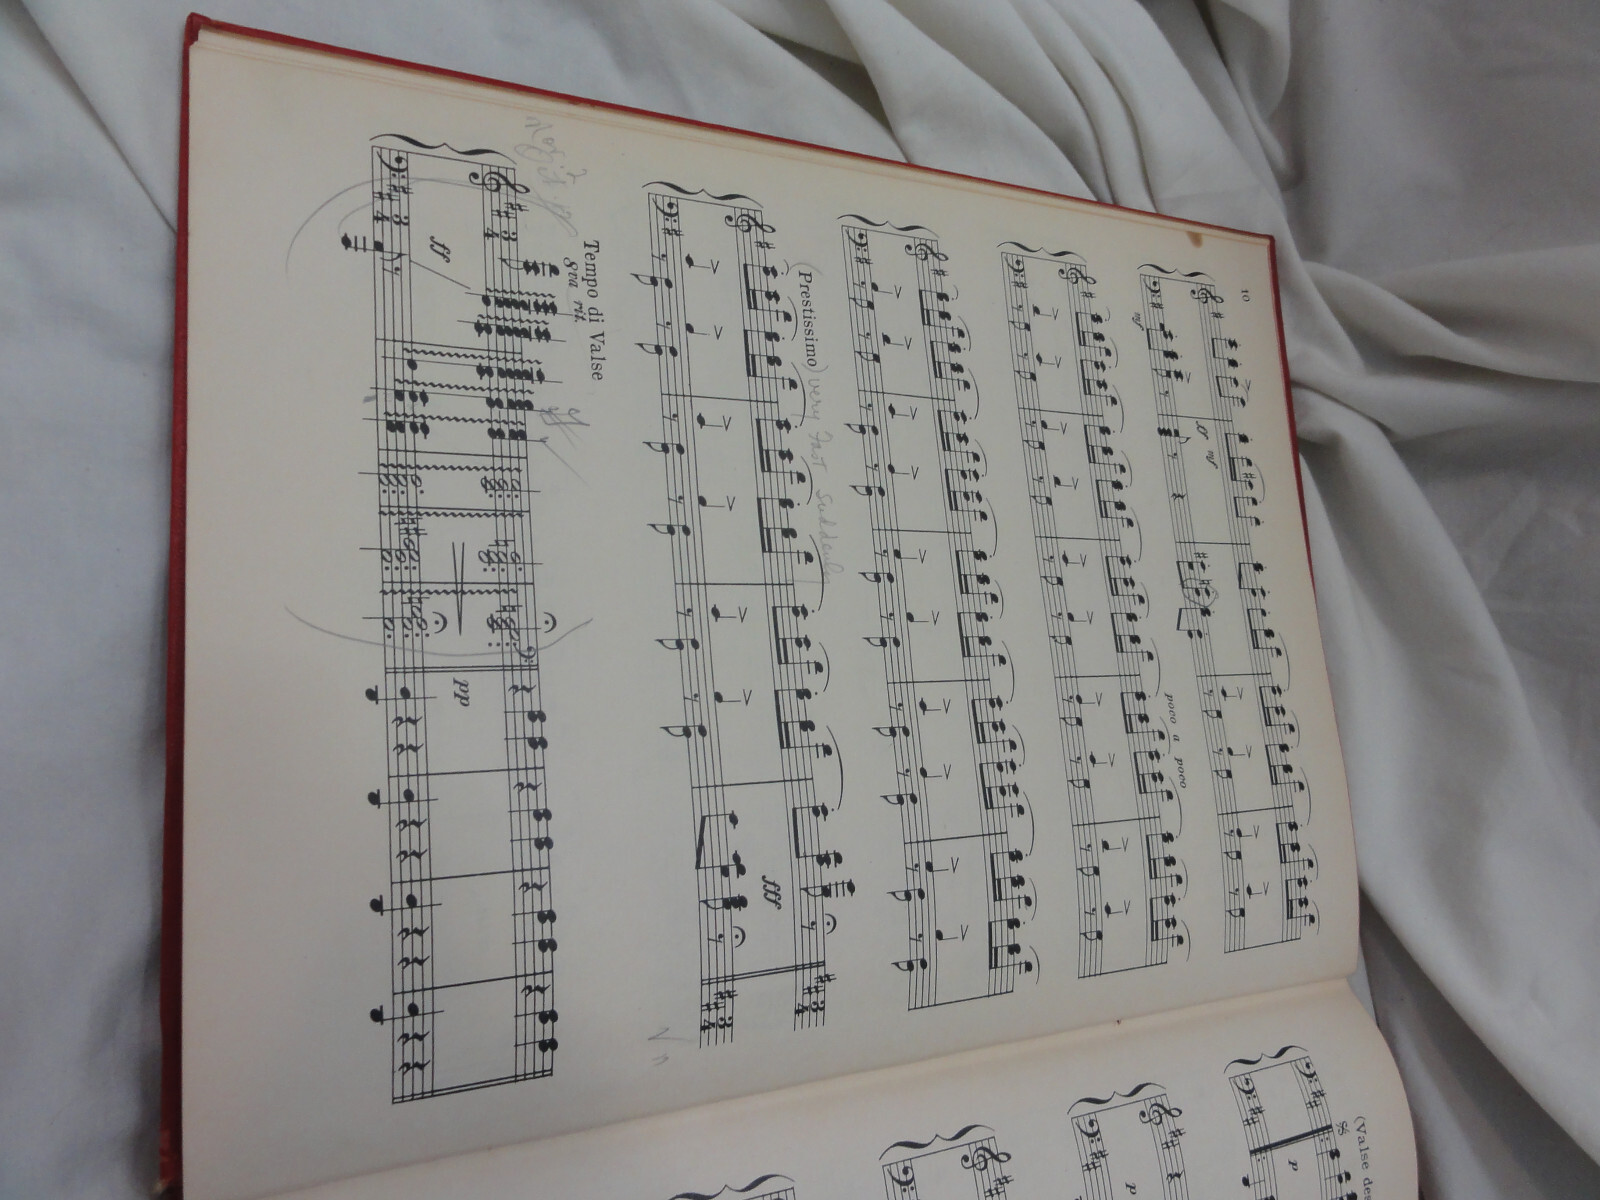 10
mf
ff mf
poco a poco
(Prestissimo) very Fast suddenly
fff
3
4
3
4
Tempo di Valse
8va rit.
3
4
ff
3
4
pp
(Valse des
p
p